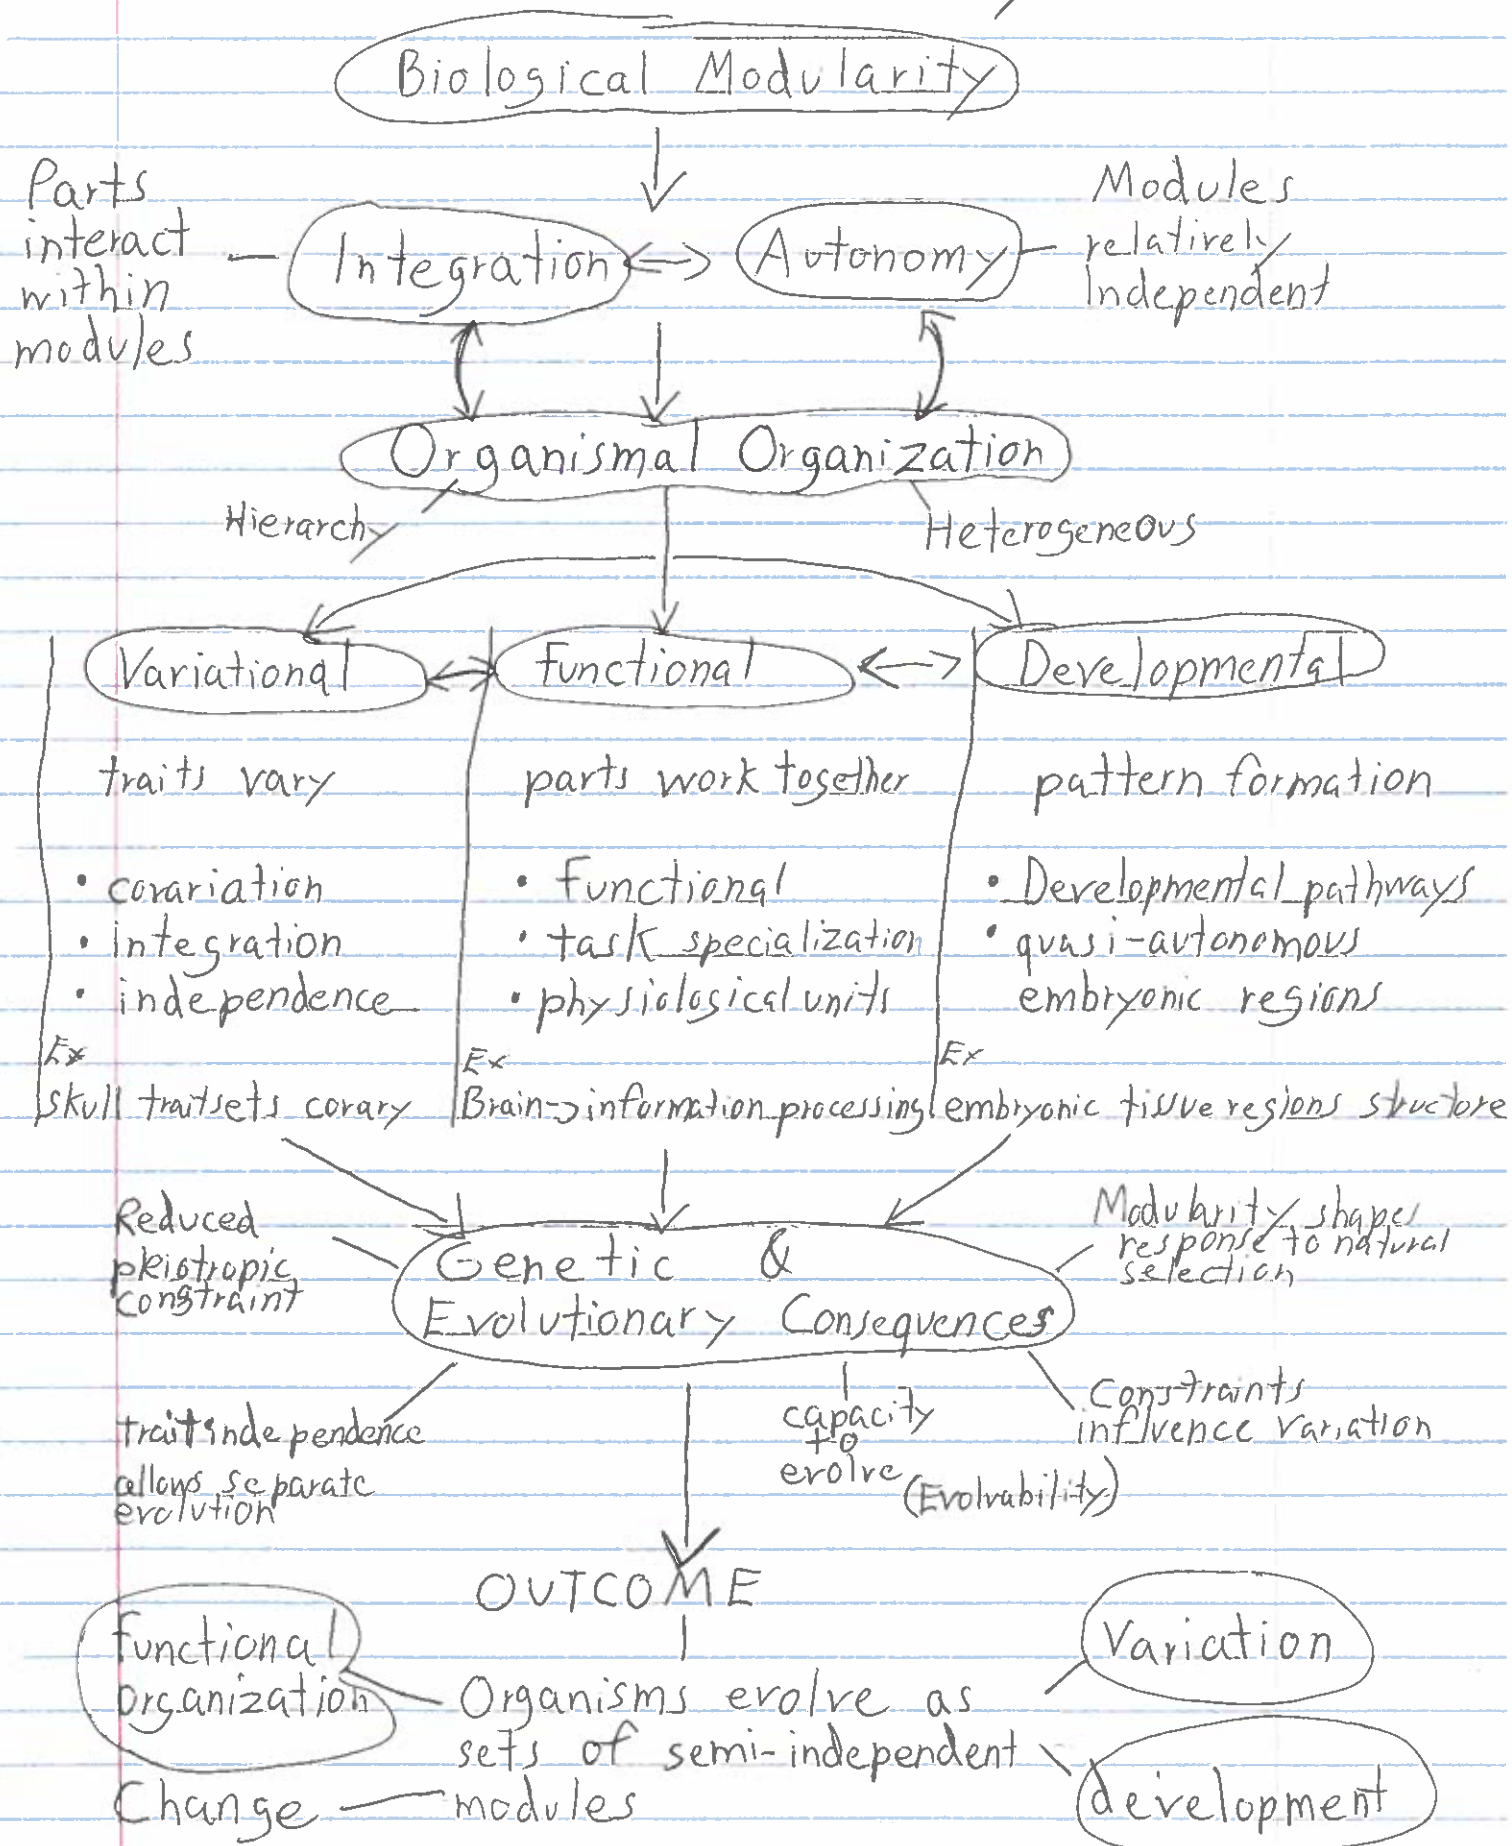 Biological Modularity
Parts
interact
within
modules
Integration
Autonomy
Modules
relatively
Independent
Organismal Organization
Hierarchy
Heterogeneous
Variational
Functional
Developmental
traits vary
parts work together
pattern formation
• covariation
• integration
• independence
• Functional
• task specialization
• physiological units
• Developmental pathways
• quasi-autonomous
embryonic regions
Ex
skull traitsets covary
Ex
Brain→information processing
Ex
embryonic tissue regions structure
Reduced
pleiotropic
constraint
Genetic &
Evolutionary Consequences
Modularity shapes
response to natural
selection
trait independence
allows separate
evolution
capacity
to
evolve
(Evolvability)
Constraints
influence variation
OUTCOME
Functional
organization
Organisms evolve as
sets of semi-independent
modules
Variation
development
Change